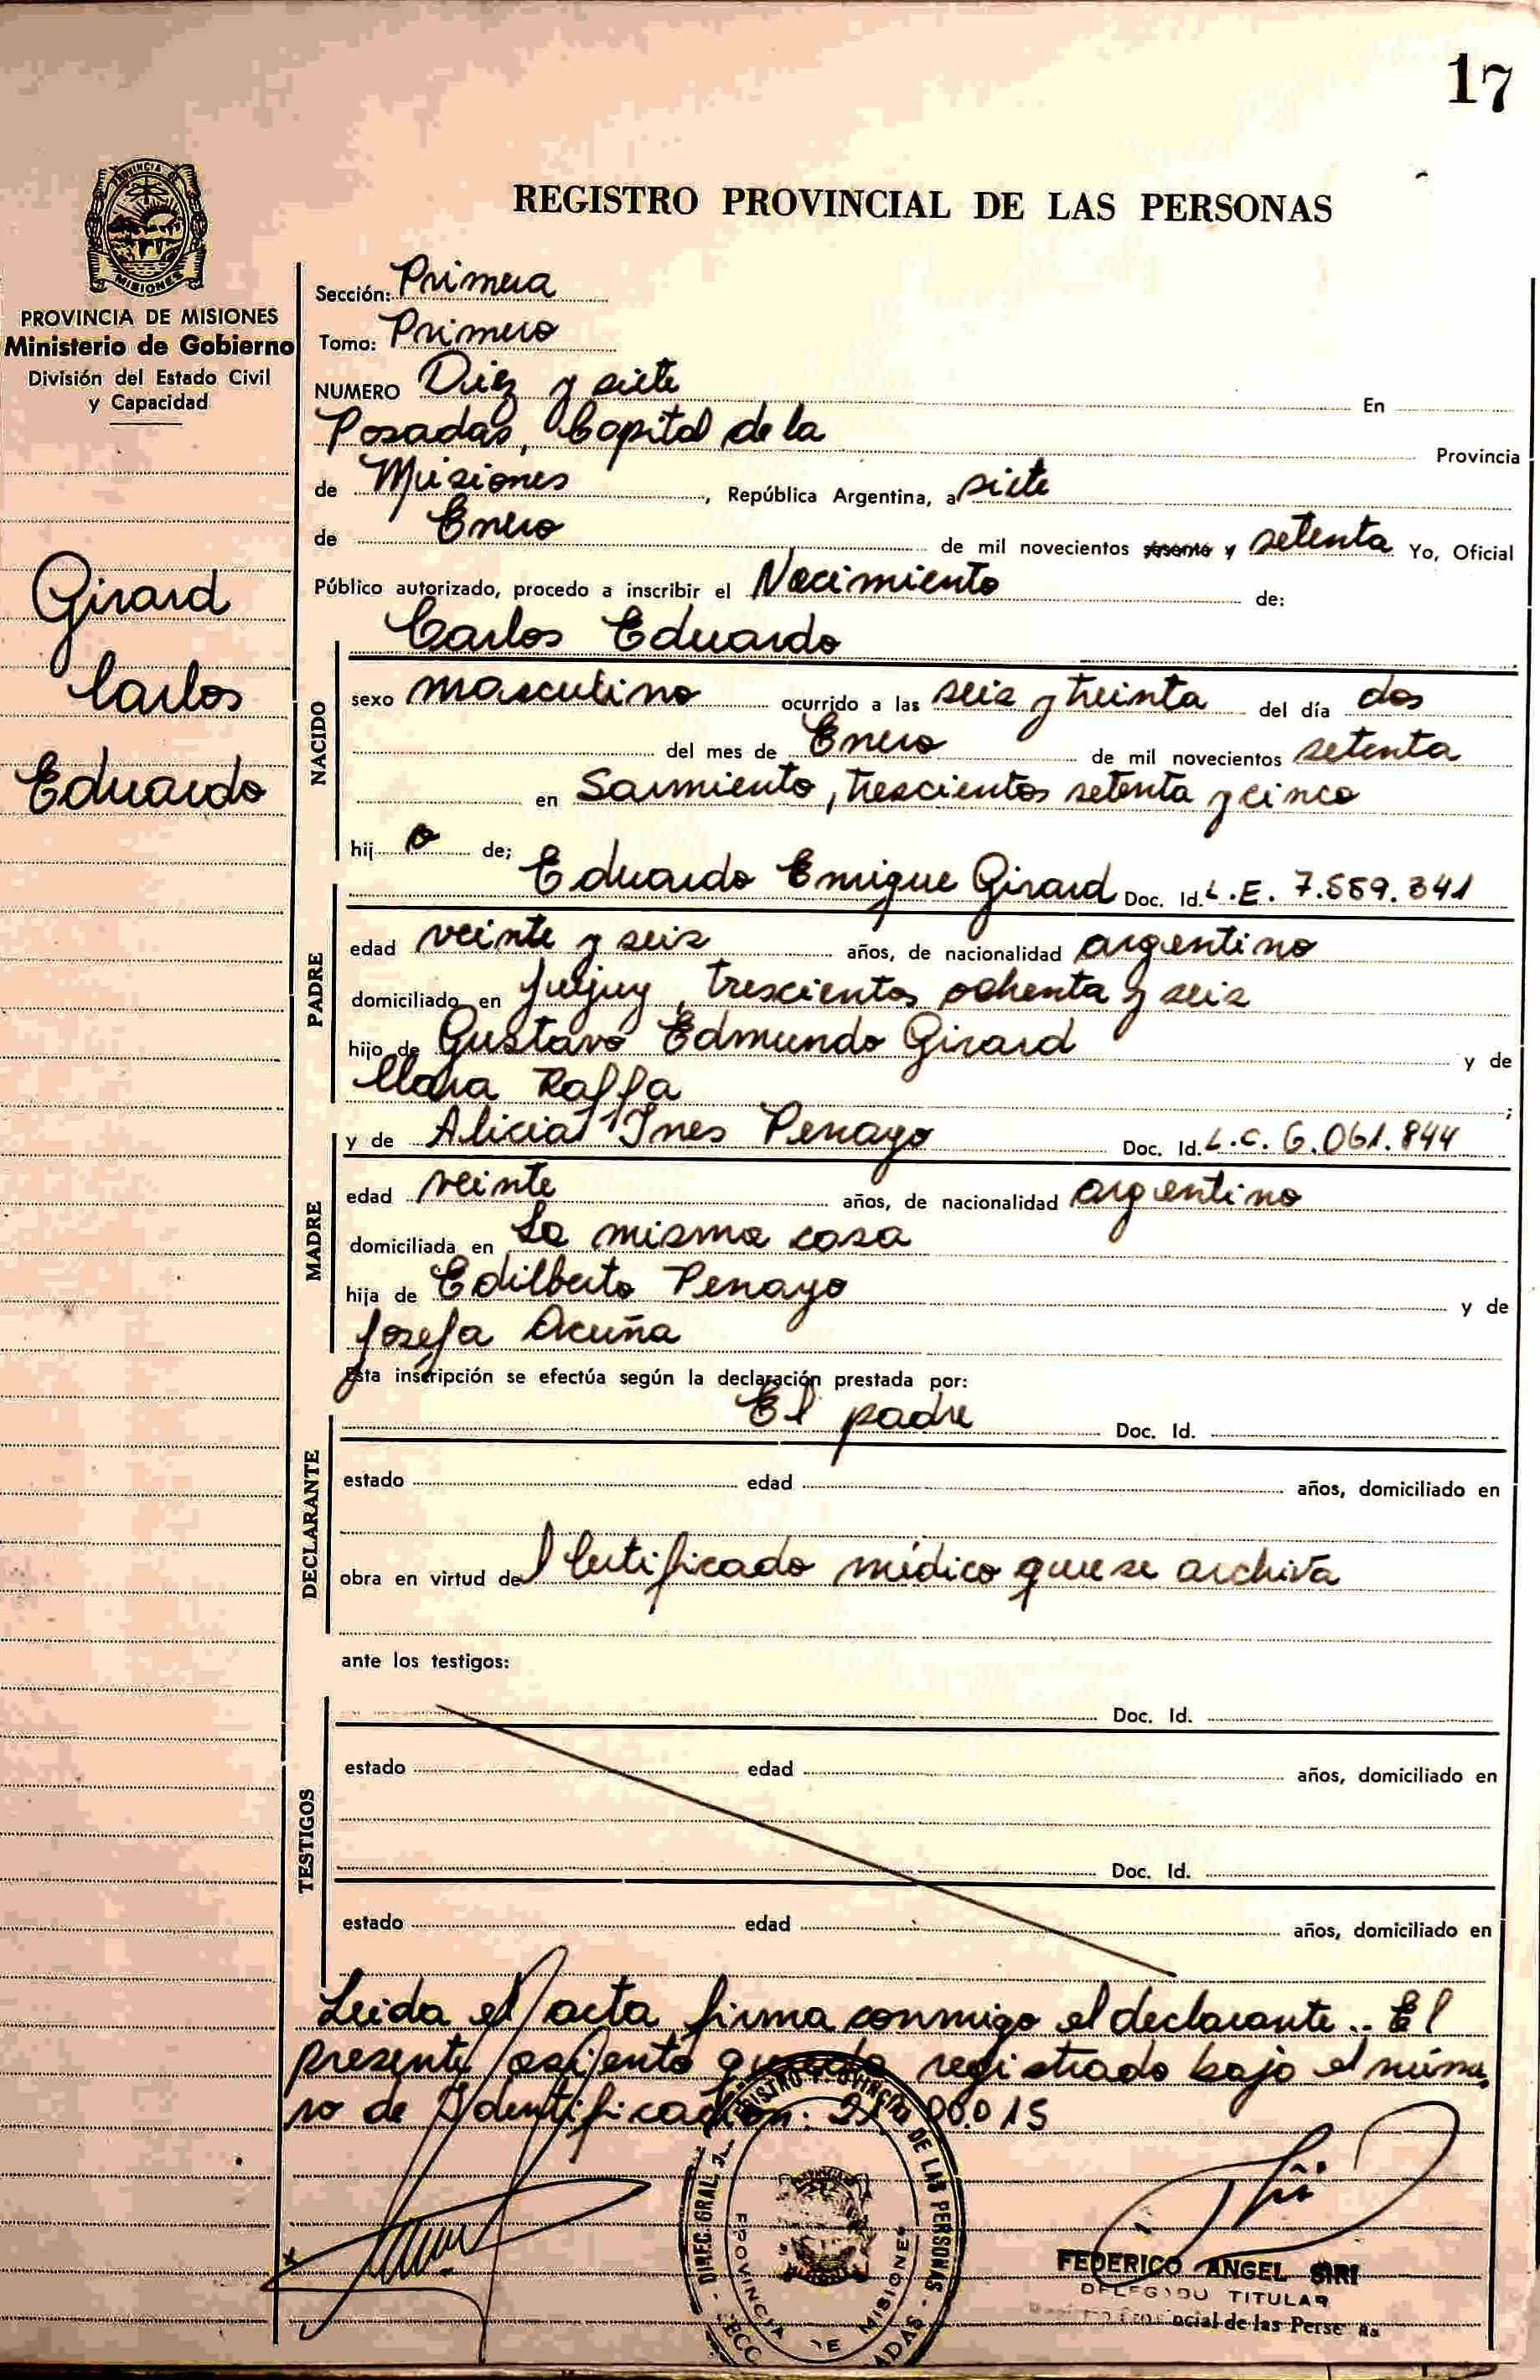 17
REGISTRO PROVINCIAL DE LAS PERSONAS
PROVINCIA DE MISIONES
Ministerio de Gobierno
División del Estado Civil
y Capacidad
Girard
Carlos
Eduardo
Sección: Primera
Tomo: Primero
NUMERO Diez y siete En
Posadas, Capital de la Provincia
de Misiones, República Argentina, a siete
de Enero de mil novecientos sesenta y setenta Yo, Oficial
Público autorizado, procedo a inscribir el Nacimiento de:
Carlos Eduardo
NACIDO
sexo masculino ocurrido a las seis y treinta del día dos
del mes de Enero de mil novecientos setenta
en Sarmiento, trescientos setenta y cinco
hijo de;
Eduardo Enrique Girard Doc. Id. L.E. 7.589.341
PADRE
edad veinte y seis años, de nacionalidad argentino
domiciliado en Jujuy, trescientos ochenta y seis
hijo de Gustavo Edmundo Girard y de
Clara Raffa;
y de Alicia Ines Penayo Doc. Id. L.C. 6.061.844
MADRE
edad veinte años, de nacionalidad argentino
domiciliada en La misma casa
hija de Edilberto Penayo y de
Josefa Acuña
Esta inscripción se efectúa según la declaración prestada por:
El padre Doc. Id.
DECLARANTE
estado edad años, domiciliado en
obra en virtud del Certificado médico que se archiva
ante los testigos:
Doc. Id.
TESTIGOS
estado edad años, domiciliado en
Doc. Id.
estado edad años, domiciliado en
Leida el acta firma conmigo el declarante.. El
presente asiento queda registrado bajo el núme
ro de Identificación:
REGISTRO PROVINCIAL DE LAS PERSONAS
PROVINCIA DE MISIONES
FEDERICO ANGEL SIRI
DELEGADO TITULAR